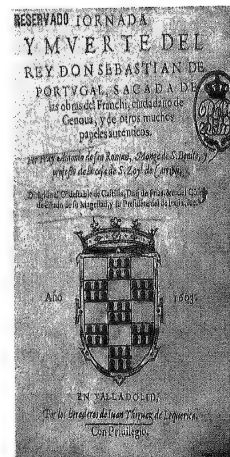 RESERVADO IORNADA
Y MVERTE DEL
REY DON SEBASTIAN DE
PORTVGAL, SACADA DE
las obras del Franchi, ciudadano de
Genoua, y de otros muchos
papeles autenticos.
Por Fray Antonio de san Roman, Monge de S. Benito, y
professo de la casa de S. Zoyl de Carrion.
Dirigida al Condestable de Castilla, Duque de Frias, del
de Estado de su Magestad, y su Presidente de Italia, &c.
Año 1603.
EN VALLADOLID,
Por los herederos de Iuan Yñiguez de Lequerica.
Con Priuilegio.